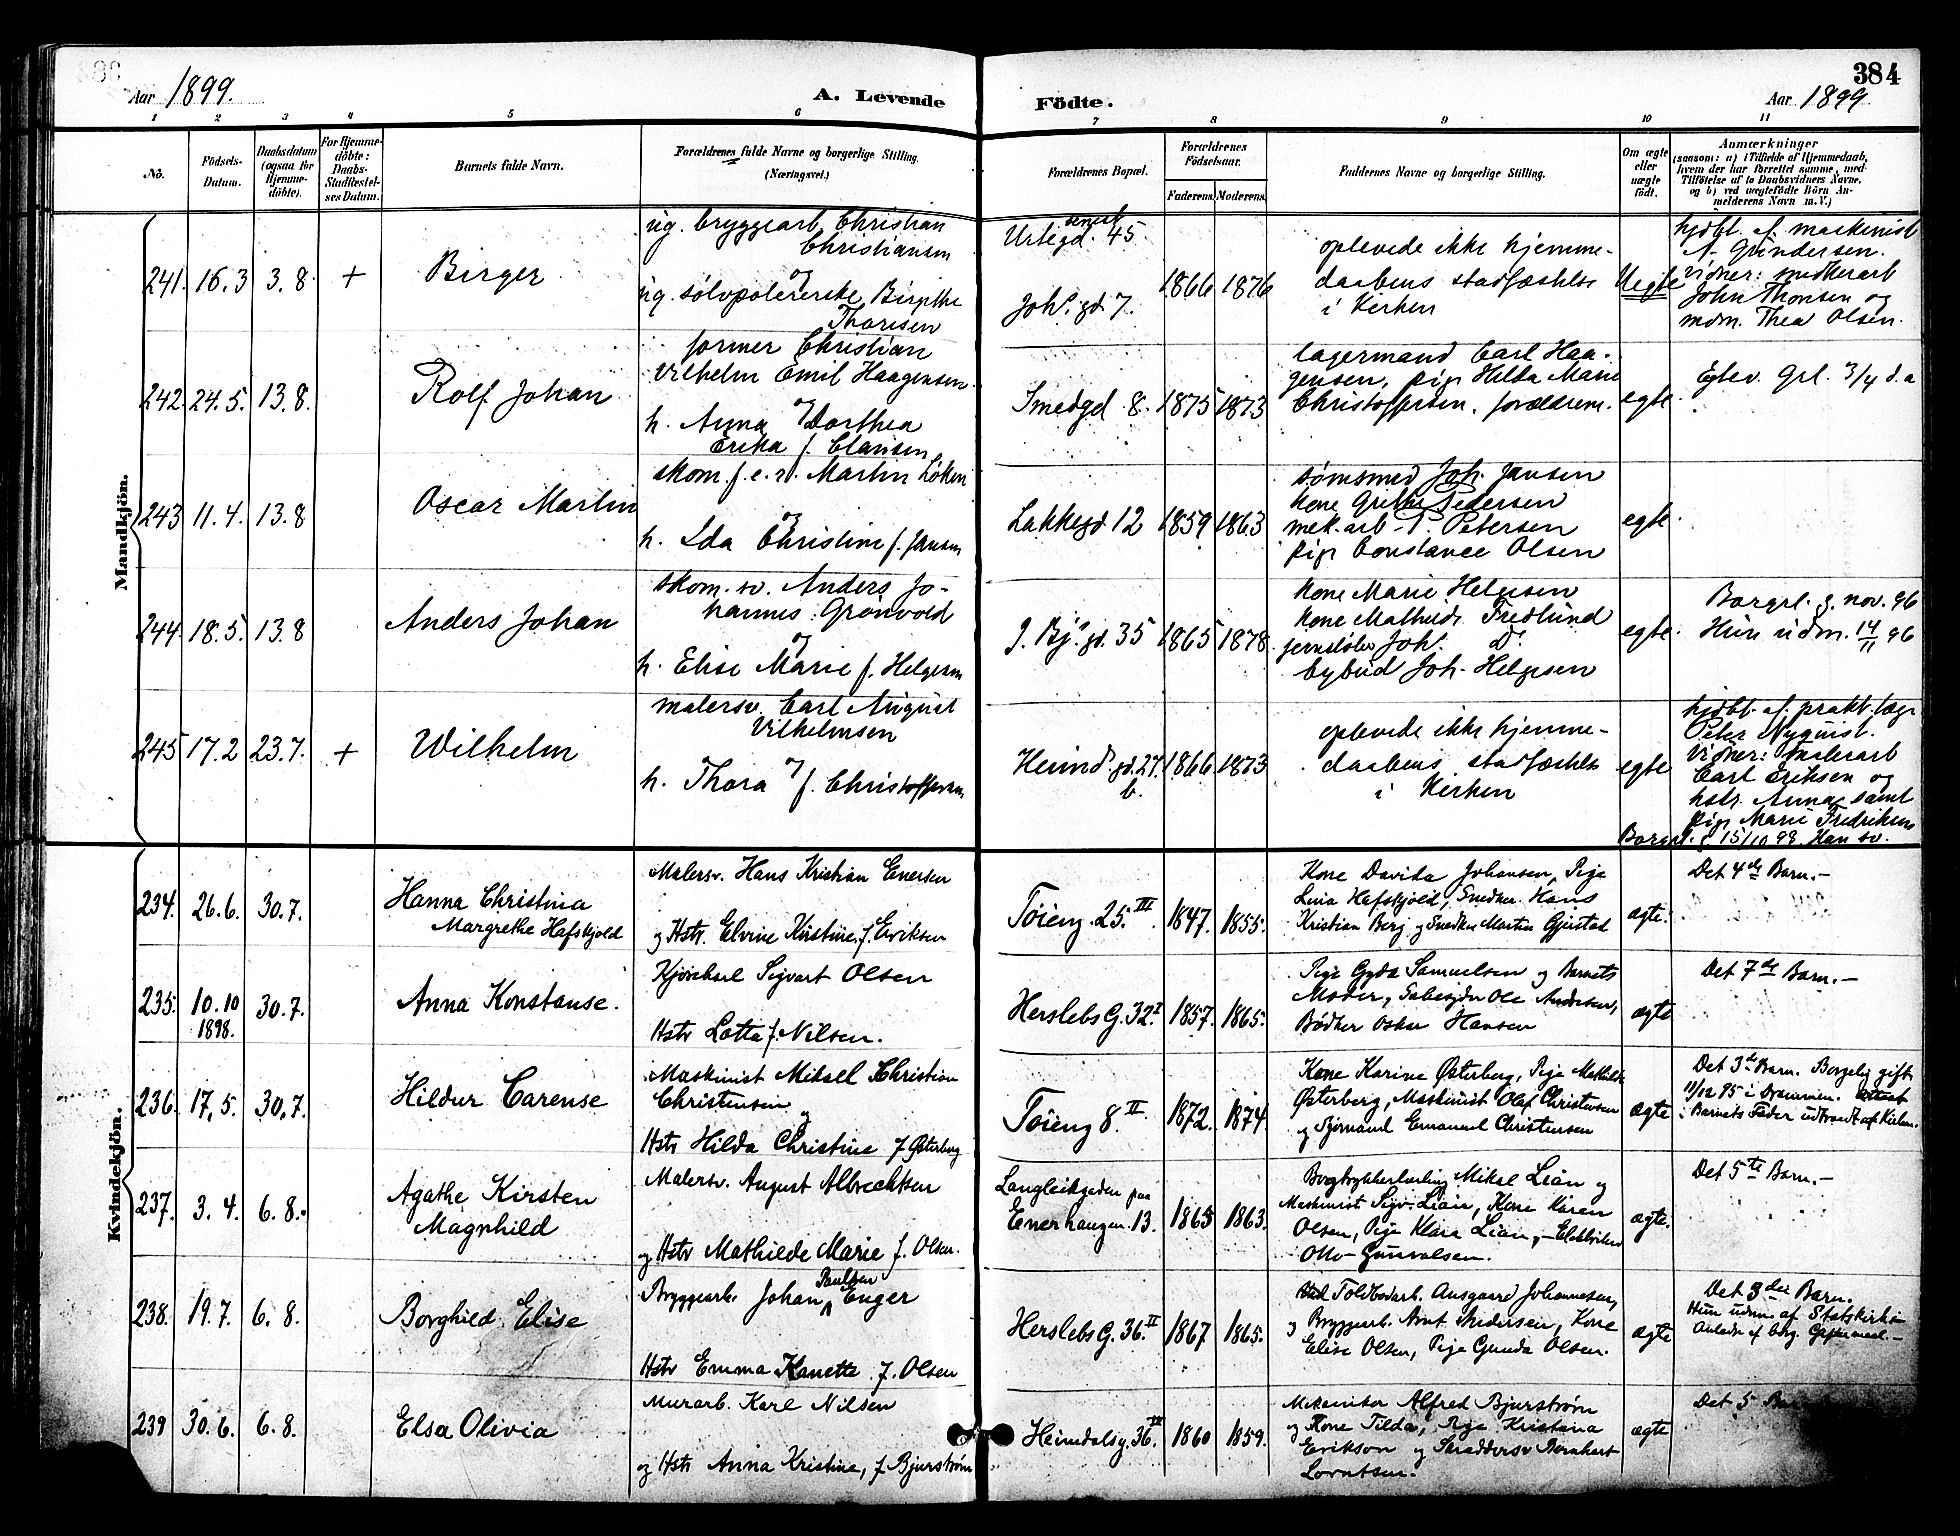 384
Aar 1899.
A. Levende Födte.
Aar 1899
1 2 3 4 5 6 7 8 9 10 11
No.
Födsels-
Datum.
Daabsdatum
(ogsaa for
Hjemme-
döbte).
For Hjemme-
döbte:
Daabs-
Stadfæstel-
ses Datum.
Barnets fulde Navn.
Forældrenes fulde Navne og borgerlige Stilling.
(Næringsvei.)
Forældrenes Bopæl.
Forældrenes
Födselsaar.
Faderens.
Moderens.
Faddernes Navne og borgerlige Stilling.
Om ægte
eller
uægte
født.
Anmærkninger
(saasom: a) i Tilfælde af Hjemmedaab,
hvem der har forrettet samme, med
Tilföielse af to Daabsvidners Navne,
og b) ved uægtefödte Börn An-
melderens Navn m. V.)
Mandkjön.
241. 16.3 3.8. +
Birger
ug. bryggearb. Christian
Christiansen
og
ug. sølvpolererske Birgithe
Thoresen
Urtegd. 45
Johs. gd. 7.
1866 1876
oplevede ikke hjemme-
daabens stadfæstelse
i Kirken
Uegte
hjdbt. af maskinist
A. Gundersen.
Vidner: snedkerarb
John Thorsen og
mdm. Thea Olsen.
242. 24.5. 13.8.
Rolf Johan
former Christian
Vilhelm Emil Haagensen
og
h. Anna Dorthea
Erika f. Clausen
Smedgd. 8.
1875 1873
lagermand Carl Haa-
gensen, pige Hilda Marie
Christoffersen, forældrene.
egte.
Egtev. grl. 3/4 d.a
243 11.4. 13.8
Oscar Martin
skom. f.e.r. Martin Løken
og
h. Ida Christine f. Jansen
Lakkegd. 12
1859 1863
sømsmed Joh. Jansen
kone Grethe Pedersen
mek.arb. P. Petersen
pige Constance Olsen
egte
244. 18.5. 13.8
Anders Johan
skom. sv. Anders Jo-
hannes Grønvold
og
h. Elise Marie f. Helgesen
1865 1878
kone Marie Helgesen
kone Mathilde Fredlund
Joh. Do
bybud Joh. Helgesen
egte.
Borgrl. g. nov. 96
Hun udm. 14/11 96
245 17.2 23.7. +
Wilhelm
malersv. Carl August
Vilhelmsen
og
h. Thora f. Christoffersen
Heimd. gd. 27.
b.
1866 1873
oplevede ikke hjemme-
daabens stadfæstelse
i Kirken
egte
hjdbt. af prakt. læge
Peter Nyquist.
Vidner: malerarb
Carl Eriksen og
hstr. Anna samt
pige Marie Fredriksen
Borgrl. g. 15/10 98. Han sv.
Kvindekjön.
234. 26.6. 30.7.
Hanna Christina
Margrethe Hafskjold
Malersv. Hans Kristian Enersen
og Hstr. Elvine Kirstine, f. Eriksen
Töieng. 25. III
1847. 1855.
Kone Davida Johansen, Pige
Lina Hafskjold, Snedker Hans
Kristian Berg og Snedker Martin Gjerstad
ægte.
Det 4de Barn.-
235. 10.10 30.7.
1898.
Anna Konstanse.
Sigvart Olsen
Hstr Lotta f. Nilsen.
Herslebs G. 32. I
1857. 1865.
Pige Gyda Samuelsen og Barnets
Moder, Ole Andersen,
Bødker Oskar Hansen
ægte
Det 7de Barn.-
236. 17.5. 30.7.
Hildur Carense
Maskinist Mikael Christian
Christensen
og
Hstr Hilda Christine f Østerberg
Töieng 8. II
1872. 1874.
Kone Karine Østerberg, Pige Mathilde
Østerberg, Maskinist Olaf Christensen
og Bjørnand Emanuel Christensen
ægte
Det 3de Barn. Borgelig gift
11/12 95 i Drammen.
Barnets Fader udtraadt af Kirken.
237. 3.4. 6.8.
Agathe Kirsten
Magnhild
Malersv. August Albrechtsen
og Hstr Mathilde Marie f. Olsen.
paa
Enerhaugen. 13.
1865 1863.
Mikal Lian og
Maskinist Sigv. Lian, Kone Karen
Olsen, Pige Klara Lian,
Otto Gunvalsen.
ægte.
Det 5te Barn.-
238. 19.7. 6.8.
Borghild Elise
Bryggearb. Johan Paulsen Enger
Hstr Emma Hanette f. Olsen
Herslebs G. 36. II
1867 1865.
Toldbodarb. Ansgaard Johannesen,
og Bryggearb. Arnt Andersen, Kone
Elise Olsen, Pige Gunda Olsen.
ægte
Det 3die Barn.
Hun udm. af Statskirken
Anledn. af borg. Giftermaal.-
239 30.6. 6.8.
Elsa Olivia
Murarb. Karl Nilsen
og Hstr Anna Kristine, f Bjurstrøm
Heimdalsg. 36.
1860 1859.
Alfred Bjurstrøm
og Kone Tilda, Pige Kristina
Erikson og Skræddersv Bernhart
Lorntsen.
ægte
Det 5